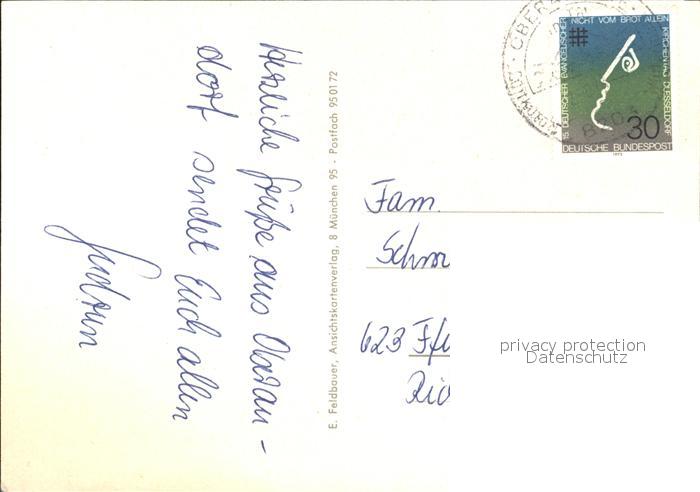 Herzliche Grüße aus Oberau-
dorf sendet Euch allen
Gudrun
E. Feldbauer, Ansichtskartenverlag, 8 München 95 · Postfach 950172
Fam.
Schm
623 Ff
Rio
15. DEUTSCHER EVANGELISCHER
NICHT VOM BROT ALLEIN
KIRCHENTAG DUESSELDORF
30
DEUTSCHE BUNDESPOST
1973
OBERA
privacy protection
Datenschutz